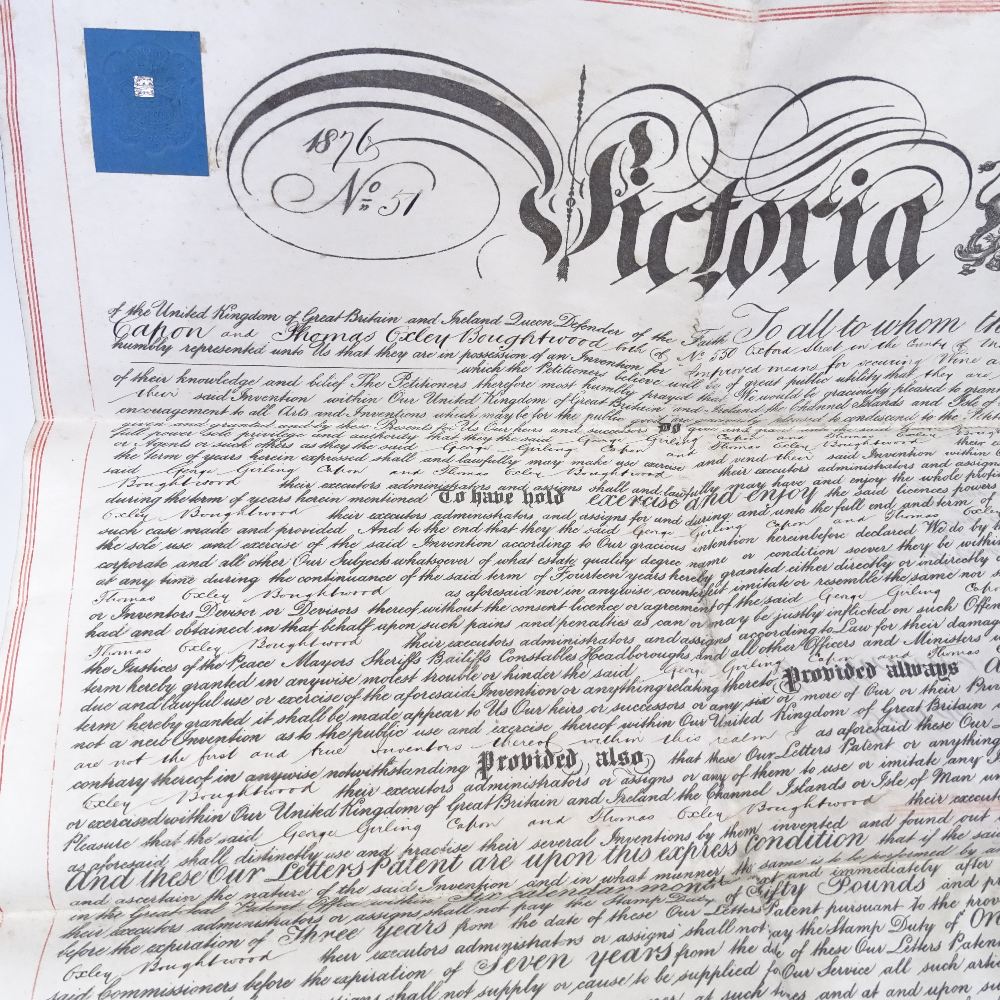 1876
No. 51
Victoria
of the United Kingdom of Great Britain and Ireland Queen Defender of the Faith To all to whom
Capon and Thomas Oxley Boughtwood both of No. 550 Oxford Street in the County of
humbly represented unto Us that they are in possession of an Invention for Improved means for securing
which the Petitioners believe will be of great public utility that they are
of their knowledge and belief The Petitioners therefore most humbly prayed that We would be graciously pleased to grant
their said Invention within Our United Kingdom of Great Britain and Ireland the Channel Islands and Isle of
encouragement to all Arts and Inventions which may be for the public good
given and granted and by these Presents for Us Our heirs and successors Do give and grant
full power sole privilege and authority that they the said George Girling Capon and Thomas Oxley
or Agents or such others as they the said George Girling Capon and Thomas Oxley Boughtwood their
the term of years herein expressed shall and lawfully may make use exercise and vend their said Invention within
said George Girling Capon and Thomas Oxley Boughtwood their executors administrators and assigns
Boughtwood their executors administrators and assigns shall and lawfully may have and enjoy the whole
during the term of years herein mentioned To have hold exercise and enjoy the said licences powers
Oxley Boughtwood their executors administrators and assigns for and during and unto the full end and term of
such case made and provided And to the end that they the said George Girling Capon and Thomas Oxley
the sole use and exercise of the said Invention according to Our gracious intention hereinbefore declared We do by
corporate and all other Our Subjects whatsoever of what estate quality degree name or condition soever they be within
at any time during the continuance of the said term of Fourteen years hereby granted either directly or indirectly
Thomas Oxley Boughtwood as aforesaid nor in anywise counterfeit imitate or resemble the same nor
or Inventors Devisor or Devisors thereof without the consent licence or agreement of the said George Girling Capon
had and obtained in that behalf upon such pains and penalties as can or may be justly inflicted on such
Thomas Oxley Boughtwood their executors administrators and assigns according to Law for their
the Justices of the Peace Mayors Sheriffs Bailiffs Constables Headboroughs and all other Officers and Ministers
term hereby granted in anywise molest trouble or hinder the said George Girling Capon and Thomas
due and lawful use or exercise of the aforesaid Invention or anything relating thereto Provided always
term hereby granted it shall be made appear to Us Our heirs or successors or any six or more of Our or their
not a new Invention as to the public use and exercise thereof within Our United Kingdom of Great Britain
are not the first and true Inventors thereof within this realm as aforesaid these Our
contrary thereof in anywise notwithstanding Provided also that these Our Letters Patent or anything
Oxley Boughtwood their executors administrators or assigns or any of them to use or imitate any
or exercised within Our United Kingdom of Great Britain and Ireland the Channel Islands or Isle of Man
Pleasure that the said George Girling Capon and Thomas Oxley Boughtwood their
as aforesaid shall distinctly use and practise their several Inventions by them invented and found out
And these Our Letters Patent are upon this express condition that if the said
and ascertain the nature of the said Invention and in what manner the same is to be performed by
in the Great Seal Patent Office within Six Calendar months next and immediately after
their executors administrators or assigns shall not pay the Stamp Duty of Fifty Pounds and
before the expiration of Three years from the date of these Our Letters Patent pursuant to the
Oxley Boughtwood their executors administrators or assigns shall not pay the Stamp Duty of
said Commissioners before the expiration of Seven years from the date of these Our Letters Patent
shall not supply or cause to be supplied for Our Service all such
at such times and at and upon such